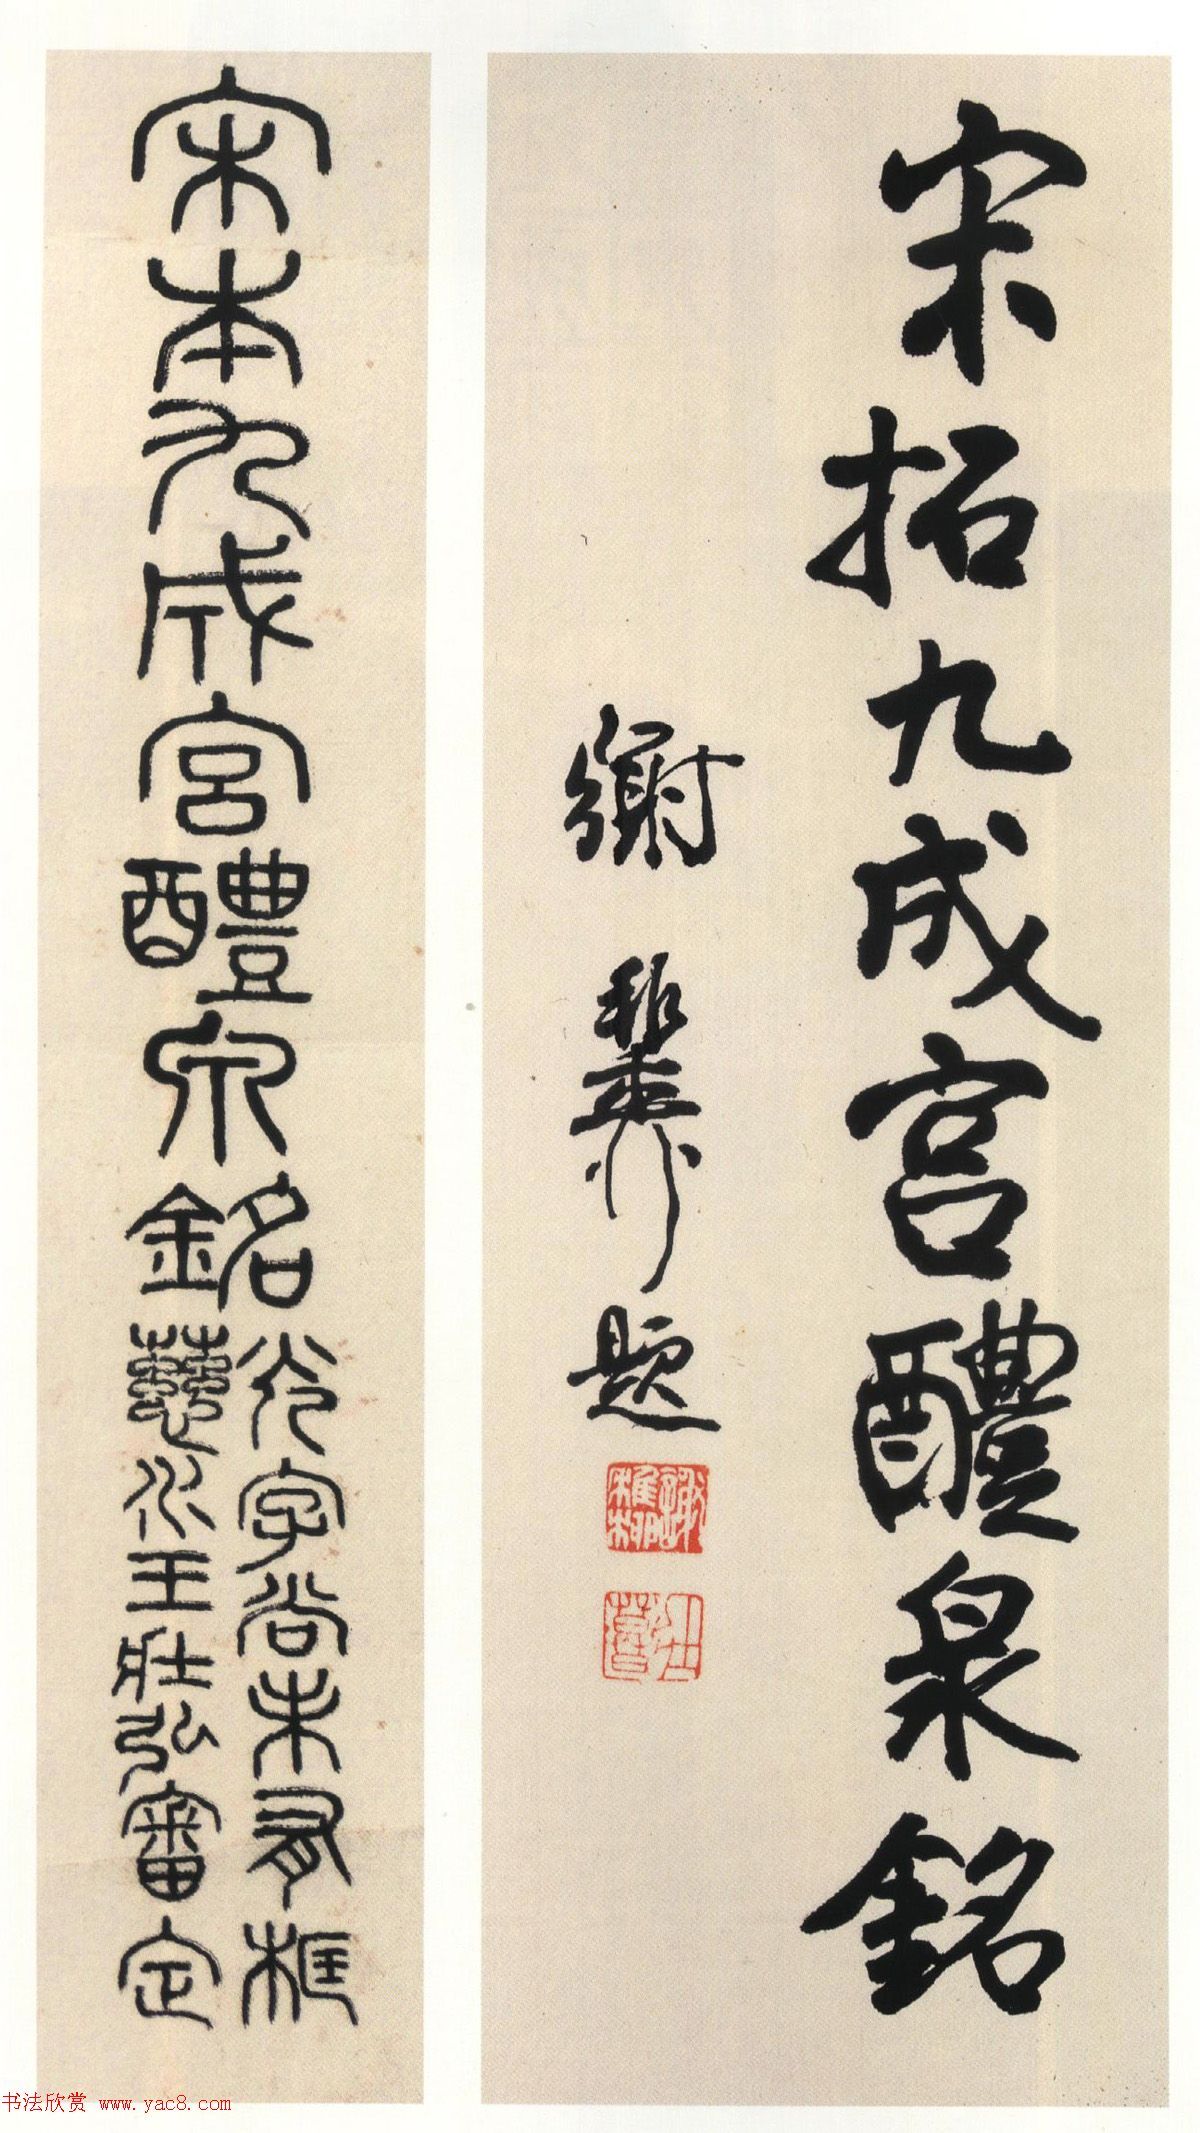 宋拓九成宮醴泉銘
題
宋本九成宮醴泉銘
光字尚未有框
王壯弘審定
书法欣赏 www.yac8.com